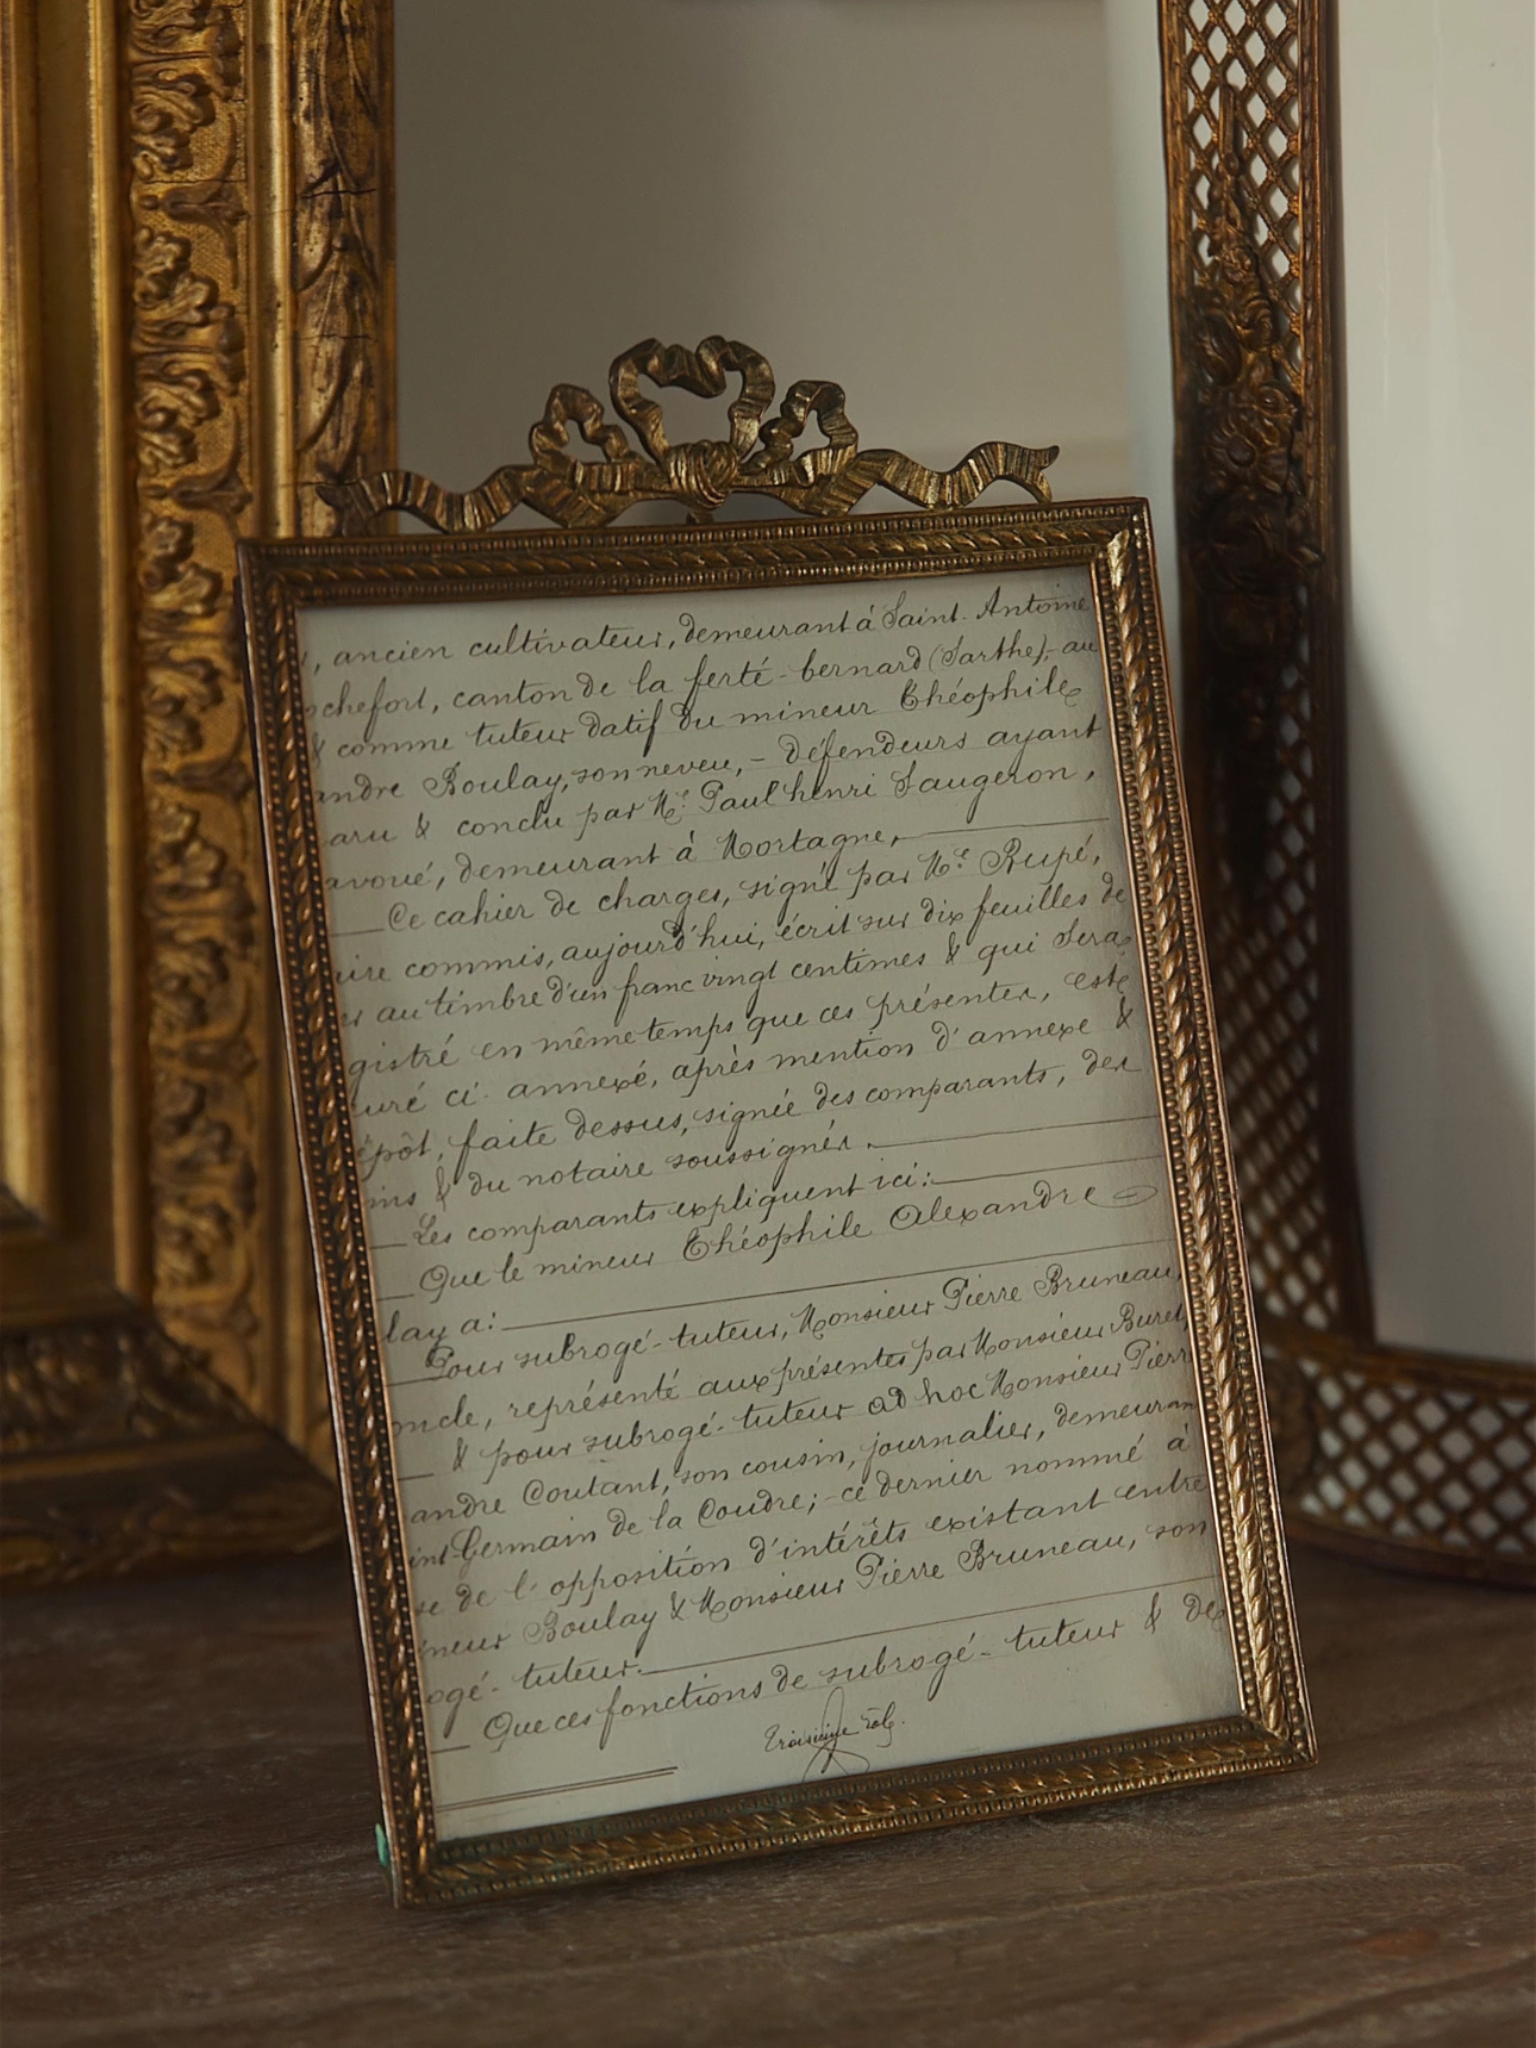 , ancien cultivateur, demeurant à Saint-Antoine
ochefort, canton de la ferté-bernard (Sarthe), - au
& comme tuteur datif du mineur Théophile
andre Boulay, son neveu, - défendeurs ayant
aru & conclu par Me. Paul henri Saugeron,
avoué, demeurant à Mortagne,
Ce cahier de charges, signé par Me. Rupé,
ire commis, aujourd'hui, écrit sur dix feuilles de
er au timbre d'un franc vingt centimes & qui sera
gistré en même temps que ces présentes, este
uré ci-annexé, après mention d'annexe &
épôt, faite dessus, signée des comparants, des
ins & du notaire soussignés.
Les comparants expliquent ici:
Que le mineur Théophile Alexandre
lay a:
Pour subrogé-tuteur, Monsieur Pierre Bruneau,
oncle, représenté aux présentes par Monsieur Buret,
& pour subrogé-tuteur ad hoc Monsieur Pierr
andre Coutant, son cousin, journalier, demeuran
int-Germain de la Coudre; - ce dernier nommé à
se de l'opposition d'intérêts existant entre
ineur Boulay & Monsieur Pierre Bruneau, son
ogé-tuteur.
Que ces fonctions de subrogé-tuteur & de
Troisième